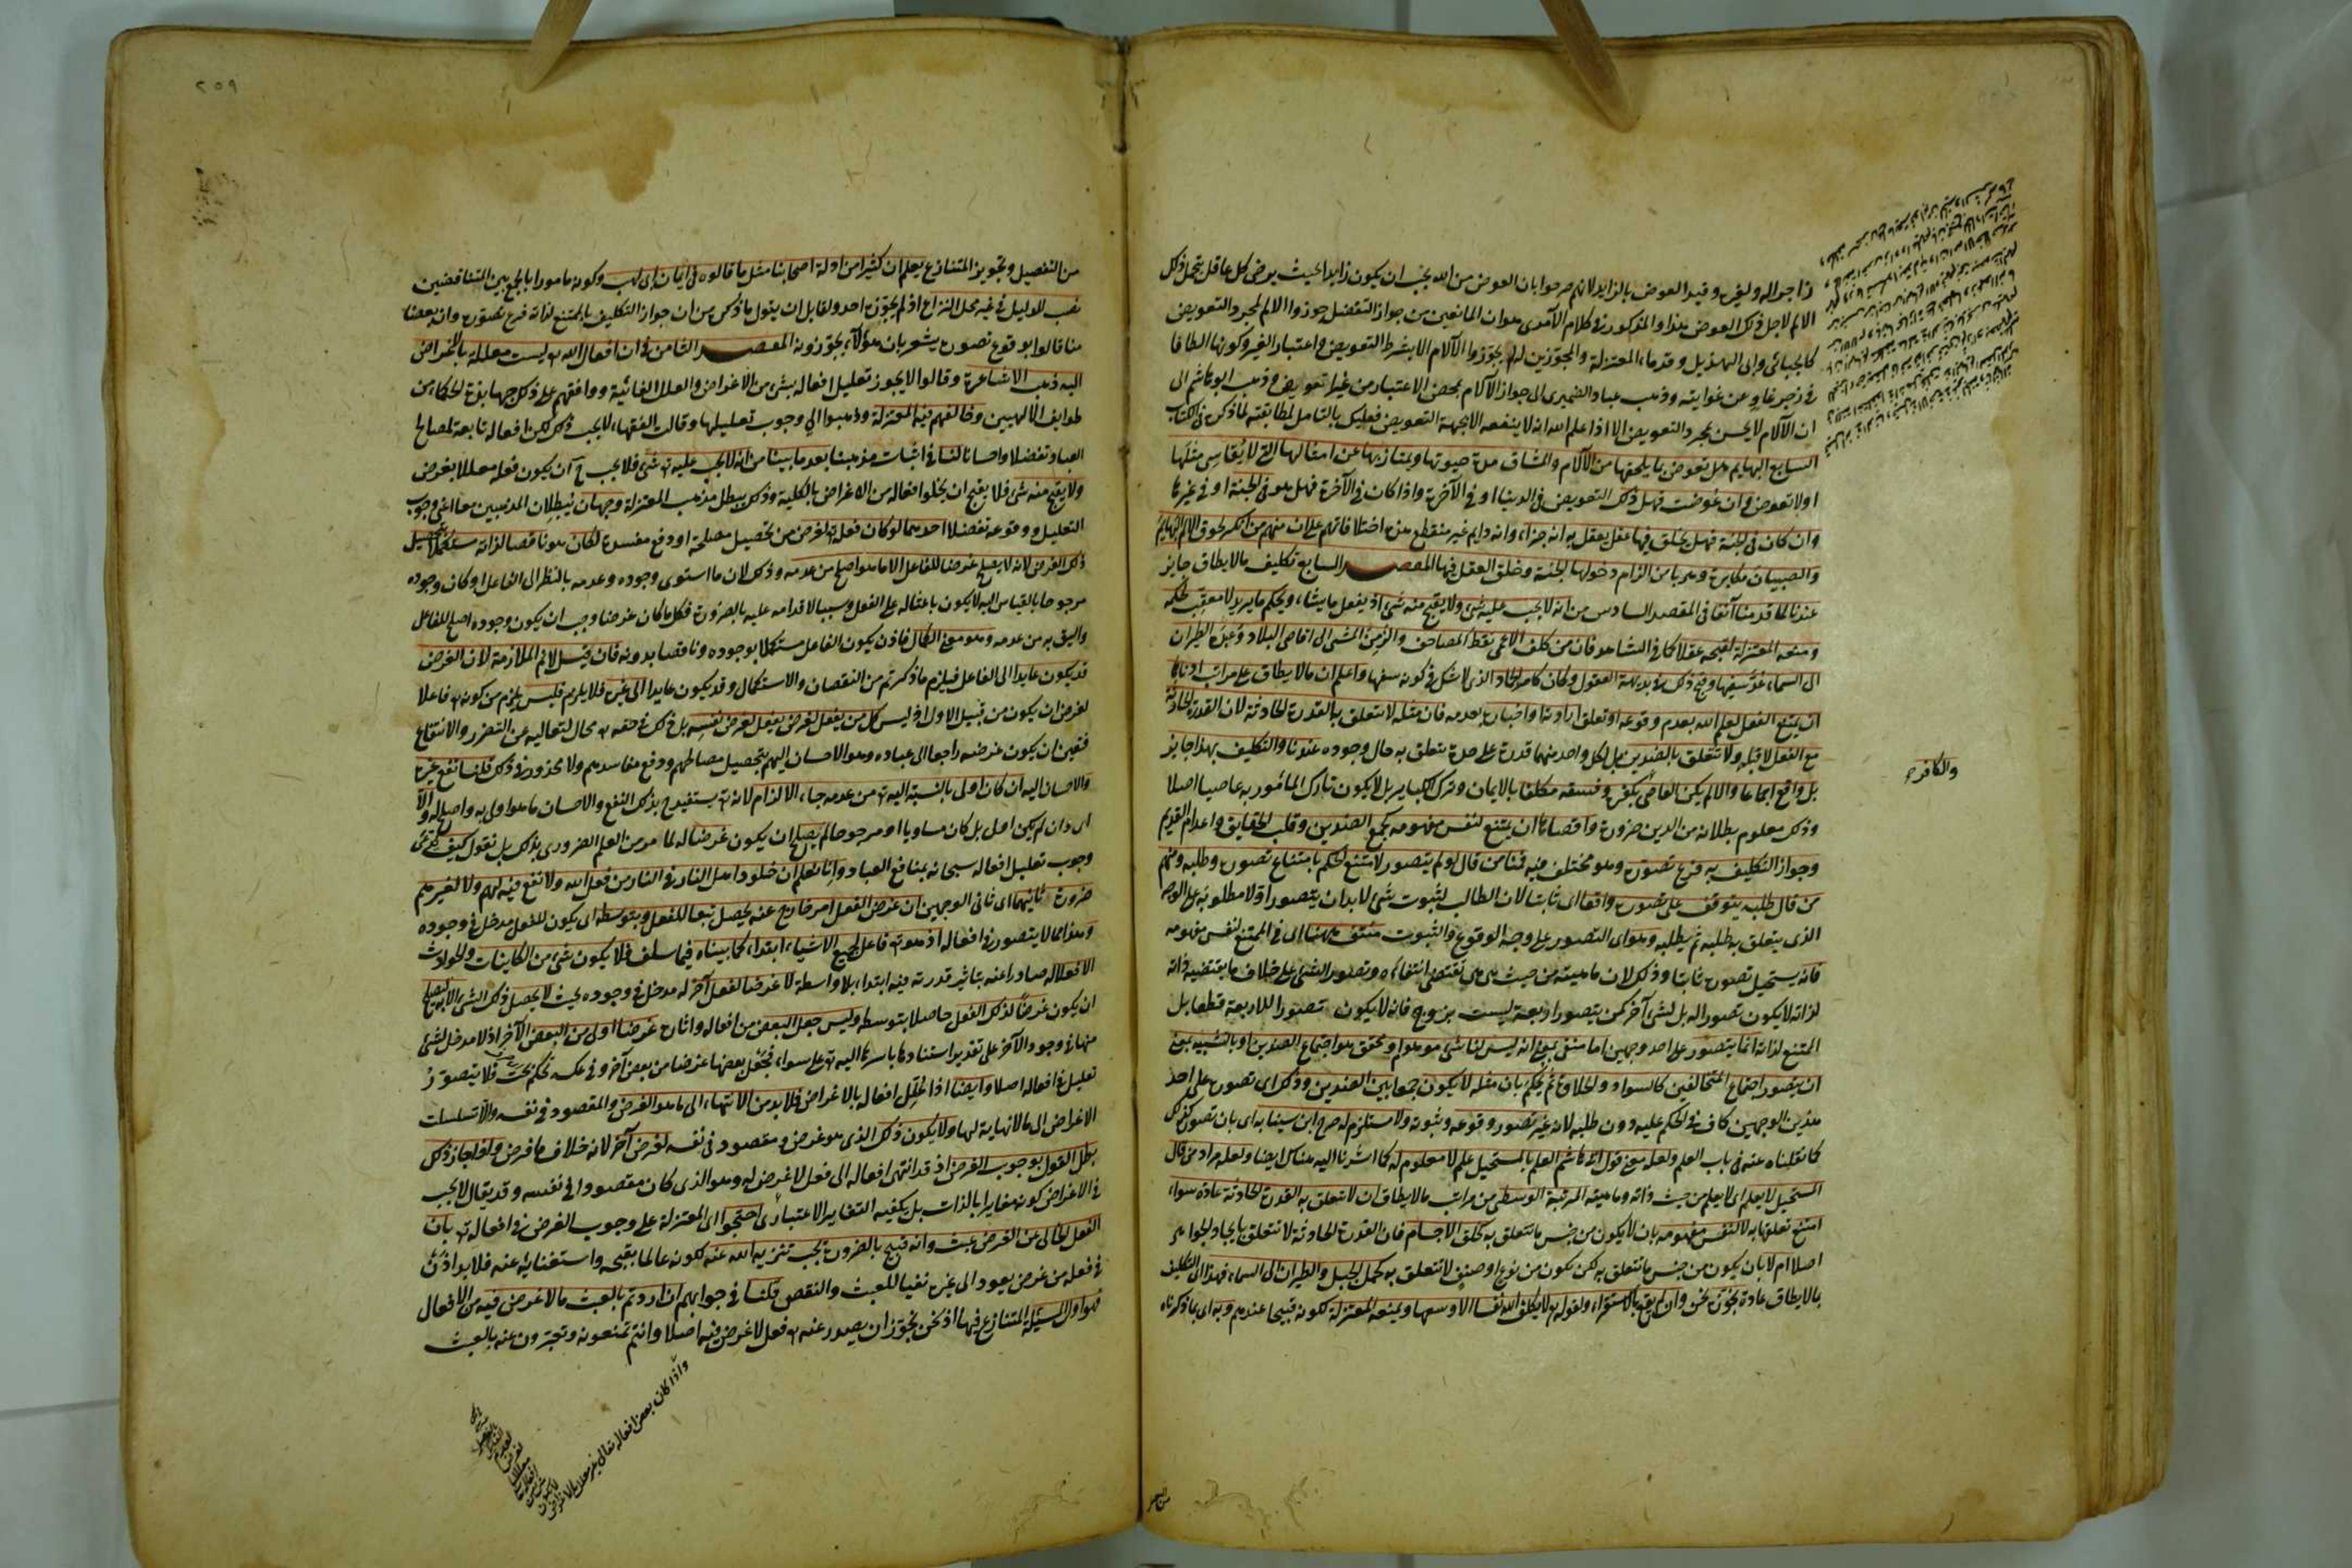 زاجرا له ولغيره وقيد العوض بالزايد لانهم صرحوا بان العوض من الله يجب ان يكون زايدا بحيث يرضى كل عاقل بتحمل ذلك
الالم لاجل ذلك العوض هذا والمذكور في كلام الآمدى هو ان المانعين من جواز التفضل جوزوا الالم لمجرد التعويض
كالجبائى وابى الهذيل وقدماء المعتزلة والمجوزين له لم يجوزوا الآلام الا بشرط التعويض واعتبار الغير وكونها الطافا
في زجر غاو عن غوايته وذهب عباد الضميرى الى جواز الآلام بمحض الاعتبار من غير تعويض وذهب ابو هاشم الى
ان الآلام لا يحسن بمجرد التعويض الا اذا علم الله انه لا ينفعه الا بجهة التعويض فعليك بالتامل لمطابقته لما ذكر في الكتاب
السابع البهايم هل تعوض بما يلحقها من الآلام والمشاق مدة حيوتها ويمتاز بها عن امثالها التي لا يقاسي مثلها
او لا تعوض وان عوضت فهل ذلك التعويض في الدنيا او في الآخرة واذا كان في الآخرة فهل هو في الجنة او في غيرها
وان كان في الجنة فهل يخلق فيها عقل يعقل به انه جزاء وانه دايم غير منقطع هذه اختلافاتهم على ان منهم من انكر لحوق الالم البهايم
والصبيان مكابرة وهربا من الزام دخولها الجنة وخلق العقل فيها المقصد السابع تكليف ما لا يطاق جايز
عندنا لما قدمنا آنفا في المقصد السادس من انه لا يجب عليه شئ ولا يقبح منه شئ اذ يفعل ما يشاء ويحكم ما يريد لا معقب لحكمه
ومنعه المعتزلة لقبحه عقلا كما في الشاهد فان من كلف الاعمى نقط المصاحف والزمن المشى الى اقاصى البلاد وعبده الطيران
الى السماء عد سفيها وقبح ذلك في بديهة العقول وكان كامر الجماد الذى لا شك في كونه سفها واعلم ان ما لا يطاق على مراتب ادناها
ان يمتنع الفعل لعلم الله بعدم وقوعه او تعلق ارادته او اخباره بعدمه فان مثله لا تتعلق به القدرة الحادثة لان القدرة الحادثة
مع الفعل لا قبله ولا تتعلق بالضدين بل لكل واحد منهما قدرة على حدة تتعلق به حال وجوده عندنا والتكليف بهذا جايز
بل واقع اجماعا والا لم يكن العاصى بكفره وفسقه مكلفا بالايمان وترك الكباير بل لا يكون تارك المامور به عاصيا اصلا
وذلك معلوم بطلانه من الدين ضرورة واقصاها ان يمتنع لنفس مفهومه كجمع الضدين وقلب الحقايق واعدام القديم
وجواز التكليف به فرع تصوره وهو مختلف فيه فمنا من قال لو لم يتصور لامتنع الحكم بامتناع تصوره وطلبه ومنهم
من قال طلبه يتوقف على تصوره واقعا اى ثابتا لان الطالب لثبوت شئ لا بد ان يتصور اولا مطلوبه على الوجه
الذى يتعلق به طلبه ثم يطلبه وهو اى التصور على وجه الوقوع والثبوت منتف ههنا اى في الممتنع لنفس مفهومه
فانه يستحيل تصوره ثابتا وذلك لان ماهيته من حيث هى هى تقتضى انتفاءه وتصور الشئ على خلاف ما يقتضيه ذاته
لذاته لا يكون تصورا له بل لشئ آخر كمن يتصور اربعة ليست بزوج فانه لا يكون تصورا للاربعة قطعا بل
الممتنع لذاته انما يتصور على احد وجهين اما منفيا بمعنى انه ليس لنا شئ موهوم او محقق هو اجتماع الضدين او بالتشبيه بمعنى
ان يتصور اجتماع المتخالفين كالسواد والحلاوة ثم يحكم بان مثله لا يكون جمعا بين الضدين وذلك اى تصوره على احد
هذين الوجهين كاف في الحكم عليه دون طلبه لانه غير تصور وقوعه وثبوته ولا مستلزم له صرح ابن سينا به اى بان تصوره كذلك
كما نقلناه عنه في باب العلم ولعله معنى قول ابى هاشم العلم بالمستحيل علم لا معلوم له كما اشرنا اليه هناك ايضا ولعله مراد من قال
المستحيل لا يعلم اى لا يعلم من حيث ذاته وماهيته المرتبة الوسطى من مراتب ما لا يطاق ان لا تتعلق به القدرة الحادثة عادة سواء
امتنع تعلقها به لا لنفس مفهومه بان لا يكون من جنس ما تتعلق به كخلق الاجسام فان القدرة الحادثة لا تتعلق بايجاد الجواهر
اصلا ام لا بان يكون من جنس ما تتعلق به لكن يكون من نوع او صنف لا تتعلق به كحمل الجبل والطيران الى السماء فهذا اى التكليف
بما لا يطاق عادة نجوزه نحن وان لم يقع بالاستقراء ولقوله تع لا يكلف الله نفسا الا وسعها ويمنعه المعتزلة لكونه قبيحا عندهم وبه اى بما ذكرناه
والكافر
٢٥٩
من التفصيل وتحرير المتنازع يعلم ان كثيرا من ادلة اصحابنا مثل ما قالوه في ايمان ابى لهب وكونه مامورا بالجمع بين المتناقضين
نصب للدليل في غير محل النزاع اذ لم يجوزه احد ولقايل ان يقول ما ذكره من ان جواز التكليف بالممتنع لذاته فرع تصوره وان بعضنا
منا قالوا بوقوع تصوره يشعر بان هؤلاء يجوزونه المقصد الثامن في ان افعال الله تع ليست معللة بالاغراض
اليه ذهب الاشاعرة وقالوا لا يجوز تعليل افعاله بشئ من الاغراض والعلل الغائية ووافقهم على ذلك جهابذة الحكماء من
طوايف الالهيين وخالفهم فيه المعتزلة وذهبوا الى وجوب تعليلها وقالت الفقهاء لا يجب ذلك لكن افعاله تابعة لمصالح
العباد تفضلا واحسانا لنا في اثبات مذهبنا بعد ما بينا من انه لا يجب عليه تع شئ فلا يجب ح ان يكون فعله معللا بغرض
ولا يقبح منه شئ فلا يقبح ان يخلوا افعاله من الاغراض بالكلية وذلك يبطل مذهب المعتزلة وجهان يبطلان المذهبين معا اعنى وجوب
التعليل ووقوعه تفضلا احدهما لو كان فعله تع لغرض من تحصيل مصلحة او دفع مفسدة لكان هو ناقصا لذاته مستكملا بتحصيل
ذلك الغرض لانه لا يصلح غرضا للفاعل الا ما هو اصلح من عدمه وذلك لان ما استوى وجوده وعدمه بالنظر الى الفاعل او كان وجوده
مرجوحا بالقياس اليه لا يكون باعثا له على الفعل وسببا لاقدامه عليه بالضرورة فكل ما كان غرضا وجب ان يكون وجوده اصلح للفاعل
واليق به من عدمه وهو معنى الكمال فاذن يكون الفاعل مستكملا بوجوده وناقصا بدونه فان قيل لا نم الملازمة لان الغرض
قد يكون عايدا الى الفاعل فيلزم ما ذكرتم من النقصان والاستكمال وقد يكون عايدا الى غيره فلا يلزم فليس يلزم من كونه تع فاعلا
لغرض ان يكون من قبيل الاول اذ ليس كل من يفعل لغرض يفعل لغرض نفسه بل ذلك في حقه تع محال لتعاليه عن التضرر والانتفاع
فتعين ان يكون غرضه راجعا الى عباده وهو الاحسان اليهم بتحصيل مصالحهم ودفع مفاسدهم ولا محذور في ذلك قلنا نفع غيره
والاحسان اليه ان كان اولى بالنسبة اليه تع من عدمه جاء الالزام لانه تع يستفيد ح بذلك النفع والاحسان ما هو اولى به واصلح له والا
اى وان لم يكن اولى بل كان مساويا او مرجوحا لم يصلح ان يكون غرضا له لما مر من العلم الضرورى بذلك بل نقول كيف يدعى
وجوب تعليل افعاله سبحانه بمنافع العباد وانا نعلم ان خلود اهل النار في النار من فعل الله ولا نفع فيه لهم ولا لغيرهم
ضرورة ثانيهما اى ثانى الوجهين ان غرض الفعل امر خارج عنه يحصل تبعا للفعل وبتوسطه اى يكون للفعل مدخل في وجوده
وهذا مما لا يتصور في افعاله اذ هو تع فاعل لجميع الاشياء ابتداء كما بيناه فيما سلف فلا يكون شئ من الكاينات والحوادث
الا فعلا له صادرا عنه بتاثير قدرته فيه ابتداء بلا واسطة لا غرضا لفعل آخر له مدخل في وجوده بحيث لا يحصل ذلك الشئ الا به ليصلح
ان يكون غرضا لذلك الفعل حاصلا بتوسطه وليس جعل البعض من افعاله واثاره غرضا اولى من البعض الآخر اذ لا مدخل لشئ
منها في وجود الآخر على تقدير استنادها باسرها اليه تع على سواء فجعل بعضها غرضا من بعض آخر دون عكسه تحكم بحت فلا يتصور
تعليل في افعاله اصلا وايضا اذا علل افعاله بالاغراض فلا بد من الانتهاء الى ما هو الغرض والمقصود في نفسه والا تسلسلت
الاغراض الى ما لا نهاية لها ولا يكون ذلك الذى هو غرض ومقصود في نفسه لغرض آخر لانه خلاف ما فرض ولو جاز ذلك
بطل القول بوجوب الغرض اذ قد انتهى افعاله الى فعل لا غرض له وهو الذى كان مقصودا في نفسه وقد يقال لا يجب
في الاغراض كونه مغايرا بالذات بل يكفيه التغاير الاعتبارى احتجوا اى المعتزلة على وجوب الغرض في افعاله تع بان
الفعل الخالى عن الغرض عبث وانه قبيح بالضرورة يجب تنزيه الله عنه لكونه عالما بقبحه واستغنائه عنه فلا بد اذن
في فعله من غرض يعود الى غيره نفيا للعبث والنقص قلنا في جوابهم ان اردتم بالعبث ما لا غرض فيه من الافعال
فهو اول المسئلة المتنازع فيها اذ نحن نجوز ان يصدر عنه تع فعل لا غرض فيه اصلا وانتم تمنعونه وتعبرون عنه بالعبث
واذا كان بعض افعاله تعالى غير معلل بالاغراض